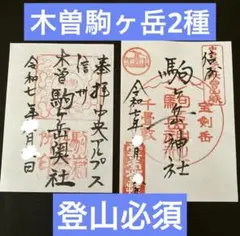 木曽駒ヶ岳2種
奉拝 中央アルプス
信州
木曽駒ヶ岳奥社
令和七年 月 日
信濃
宝剣岳
駒ヶ岳神社
千畳敷
令和七年
登山必須